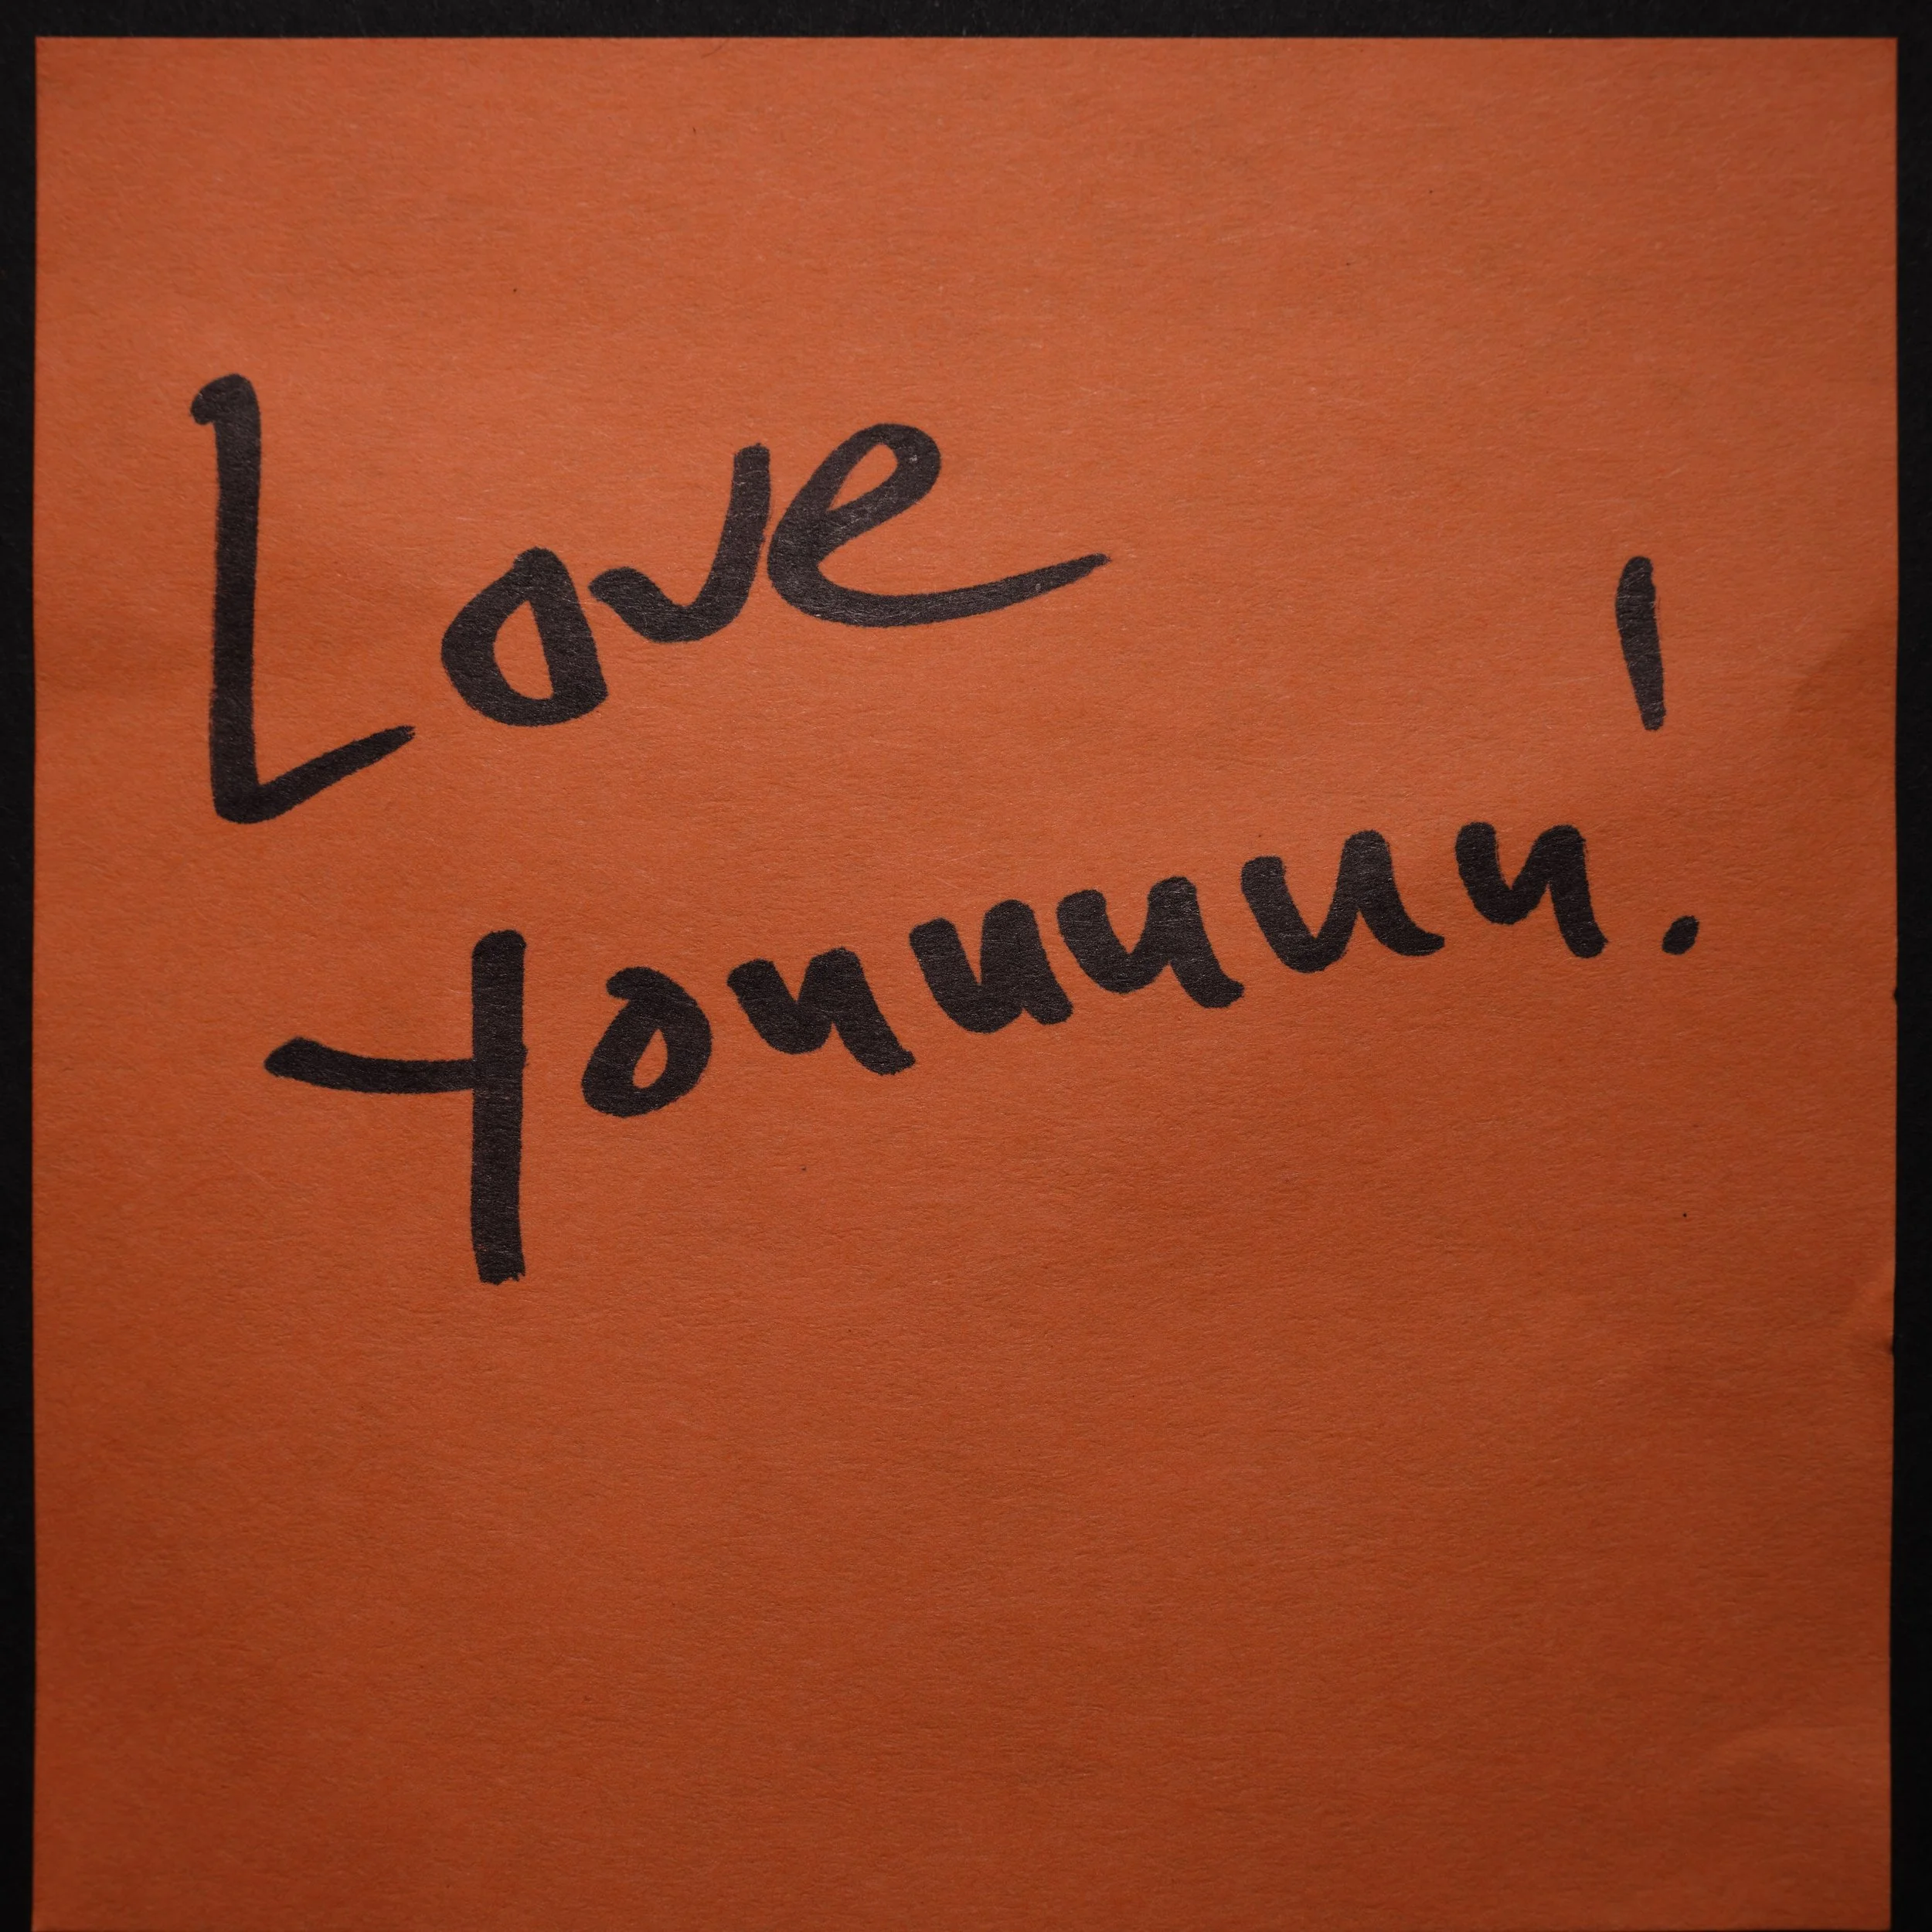 Love
Youuuuu!